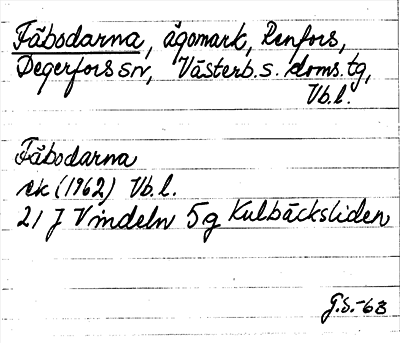 Fäbodarna, ägomark, Renfors,
Degerfors sn, Västerb. s. doms. tg,
Vb. l.
Fäbodarna
ek (1962) Vb. l.
21 J Vindeln 5g Kulbäcksliden
G.S.-63